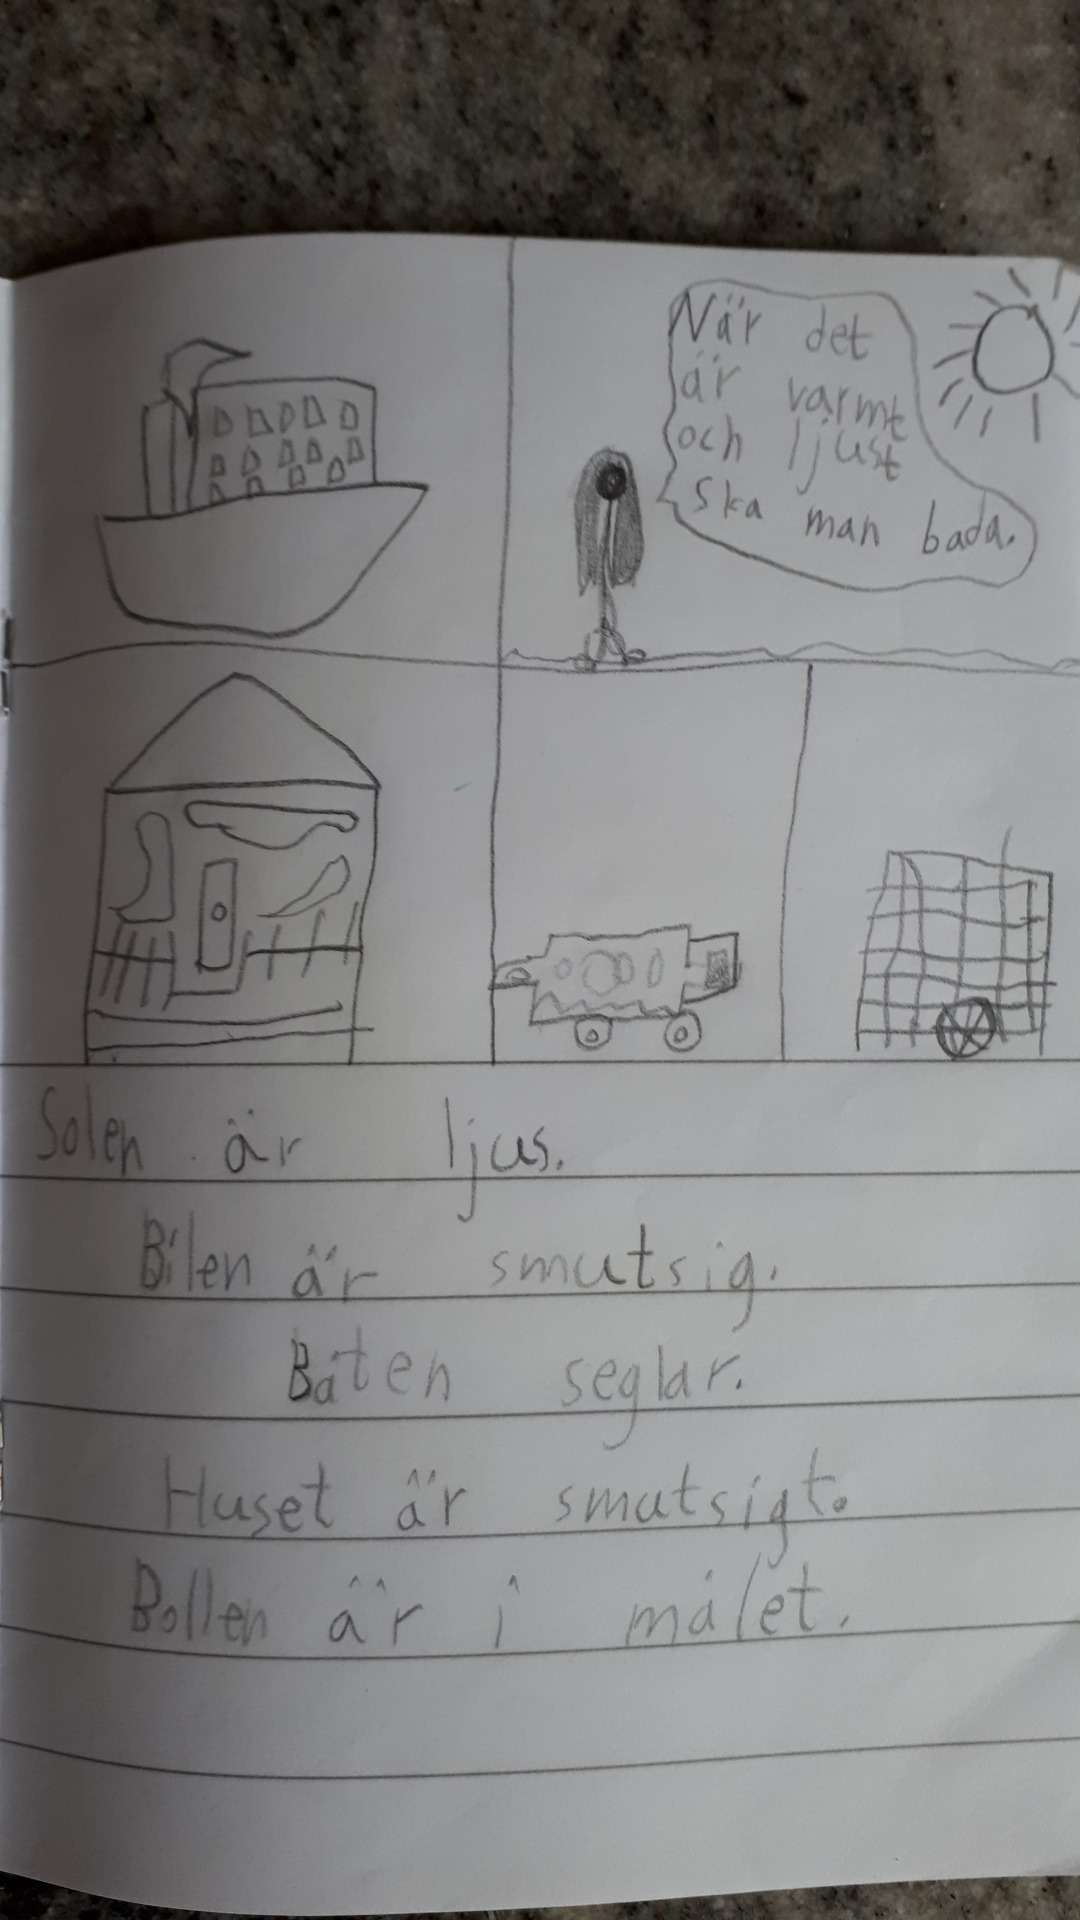 När det
är varmt
och ljust
ska man bada.
Solen är ljus.
Bilen är smutsig.
Båten seglar.
Huset är smutsigt.
Bollen är i målet.